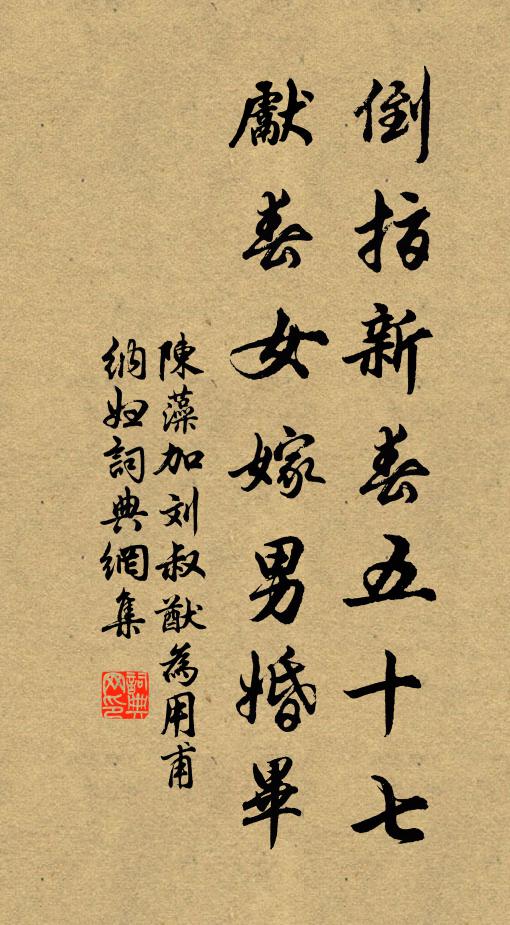 倒指新春五十七
獻春女嫁男婚畢
陳藻加刘叔猷為用甫
納婦詞典網集
詞典
网印